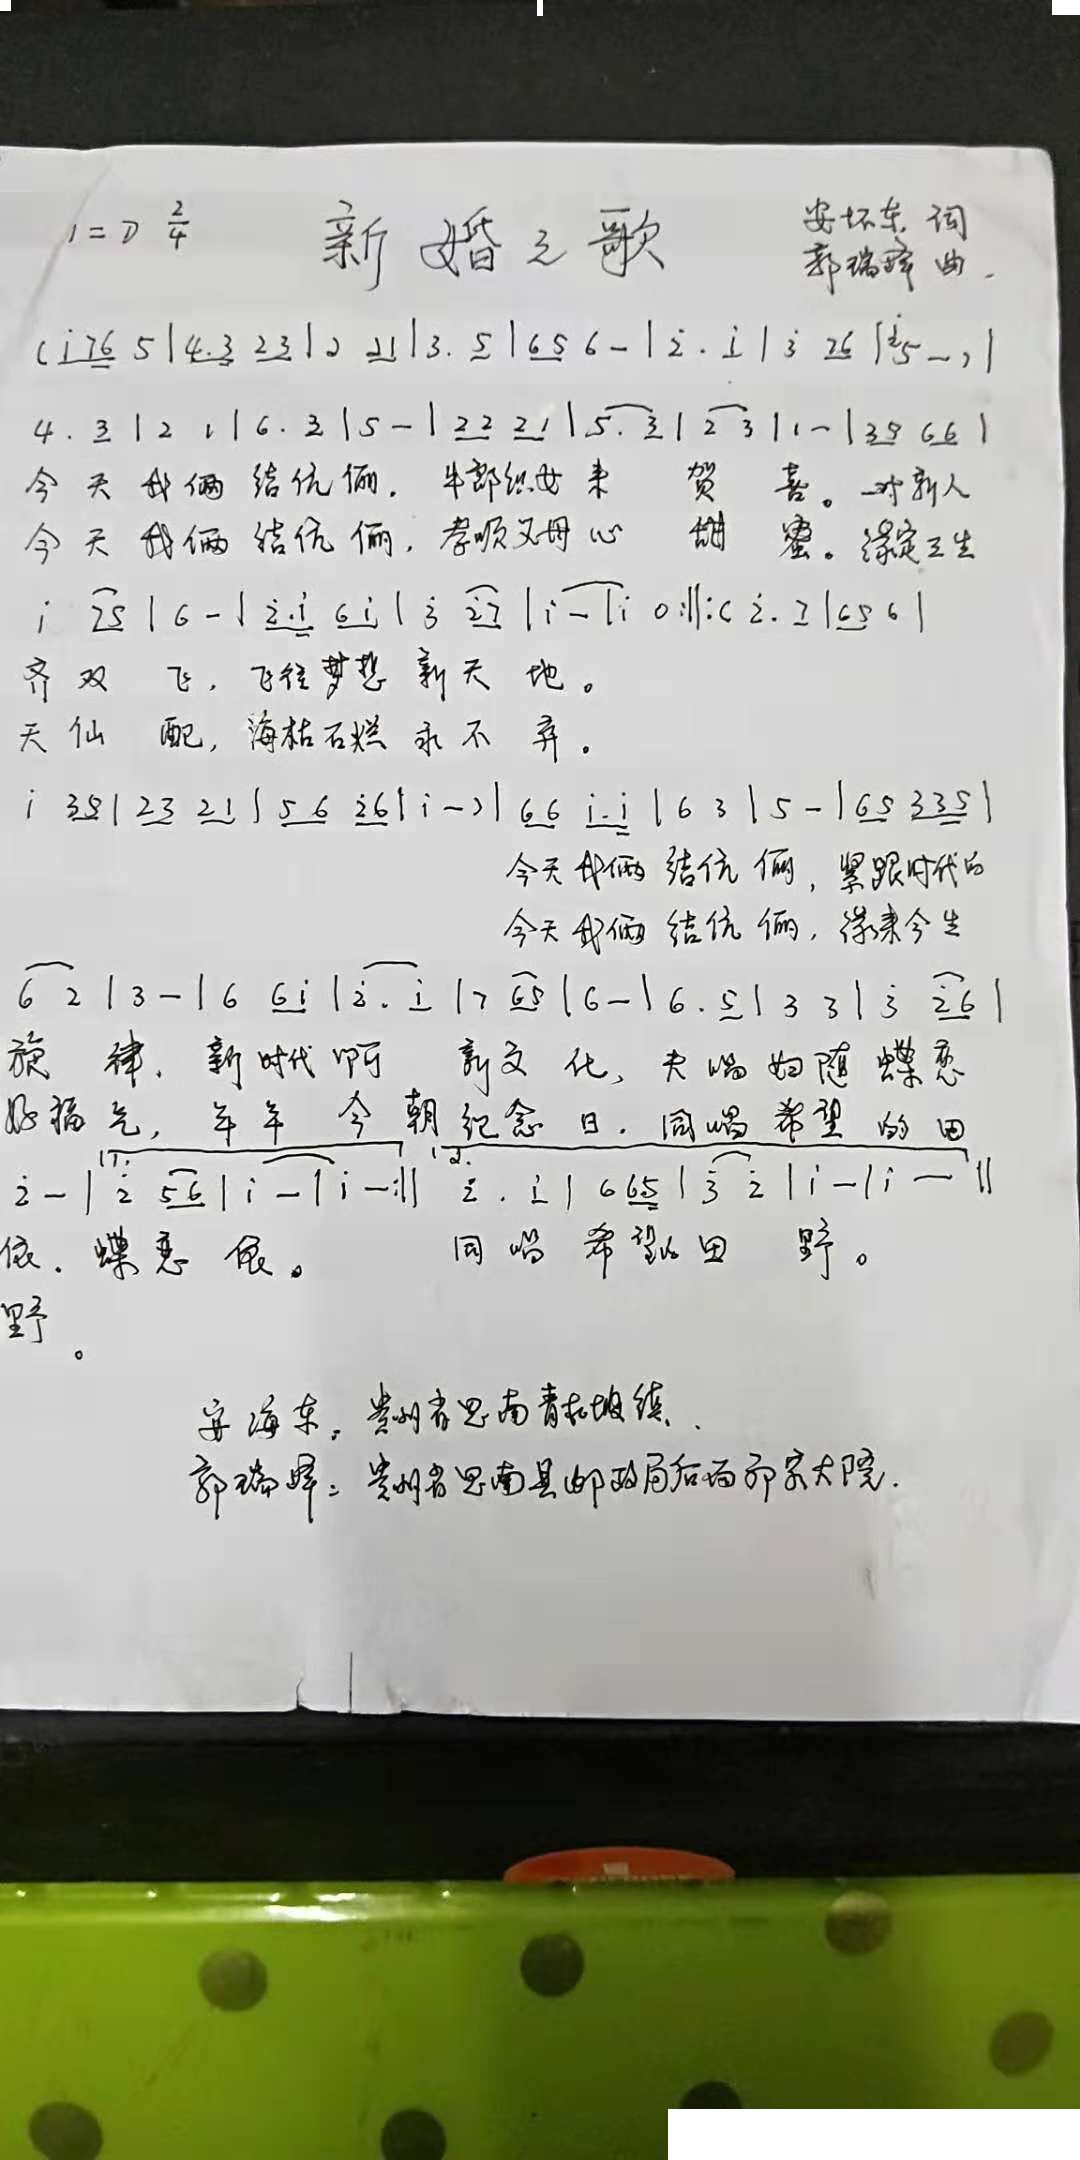 1=D 2/4 新婚之歌 安怀东 词
郭瑞峰 曲.
(i76 5|4.3 23|2 21|3. 5|656-|2̇. i|3̇ 26|5-)|
4. 3|2 1|6. 3|5-|22 21|5. 3|2 3|1-|35 66|
今天我俩结伉俪. 牛郎织女来 贺 喜。一对新人
今天我俩结伉俪, 孝顺父母心 甜 蜜。缘定三生
i 25|6-|2̇.i 6i|3̇ 2̇7|i-|i 0:||:(2̇. 7|656|
齐双 飞, 飞往梦想新天 地。
天仙 配, 海枯石烂永不 弃。
i 35|23 21|56 2̇6|i-)|66 i.i|6 3|5-|65 335|
今天我俩结伉俪, 紧跟时代的
今天我俩结伉俪, 缘来今生
6 2|3-|6 6i|2̇. i|7 65|6-|6. 5|3 3|3̇ 2̇6|
旋 律, 新时代啊 新文化, 夫唱妇随蝶恋
好福气, 年年 今朝纪念日. 同唱希望的田
1. 2.
2̇-|2̇ 56|i-|i-:|| 2̇. i|6 665|3̇ 2̇|i-|i-||
依. 蝶恋依。 同唱希望的田 野。
野。
安海东: 贵州省思南青杠坡镇.
郭瑞峰: 贵州省思南县邮政局后面邢家大院.